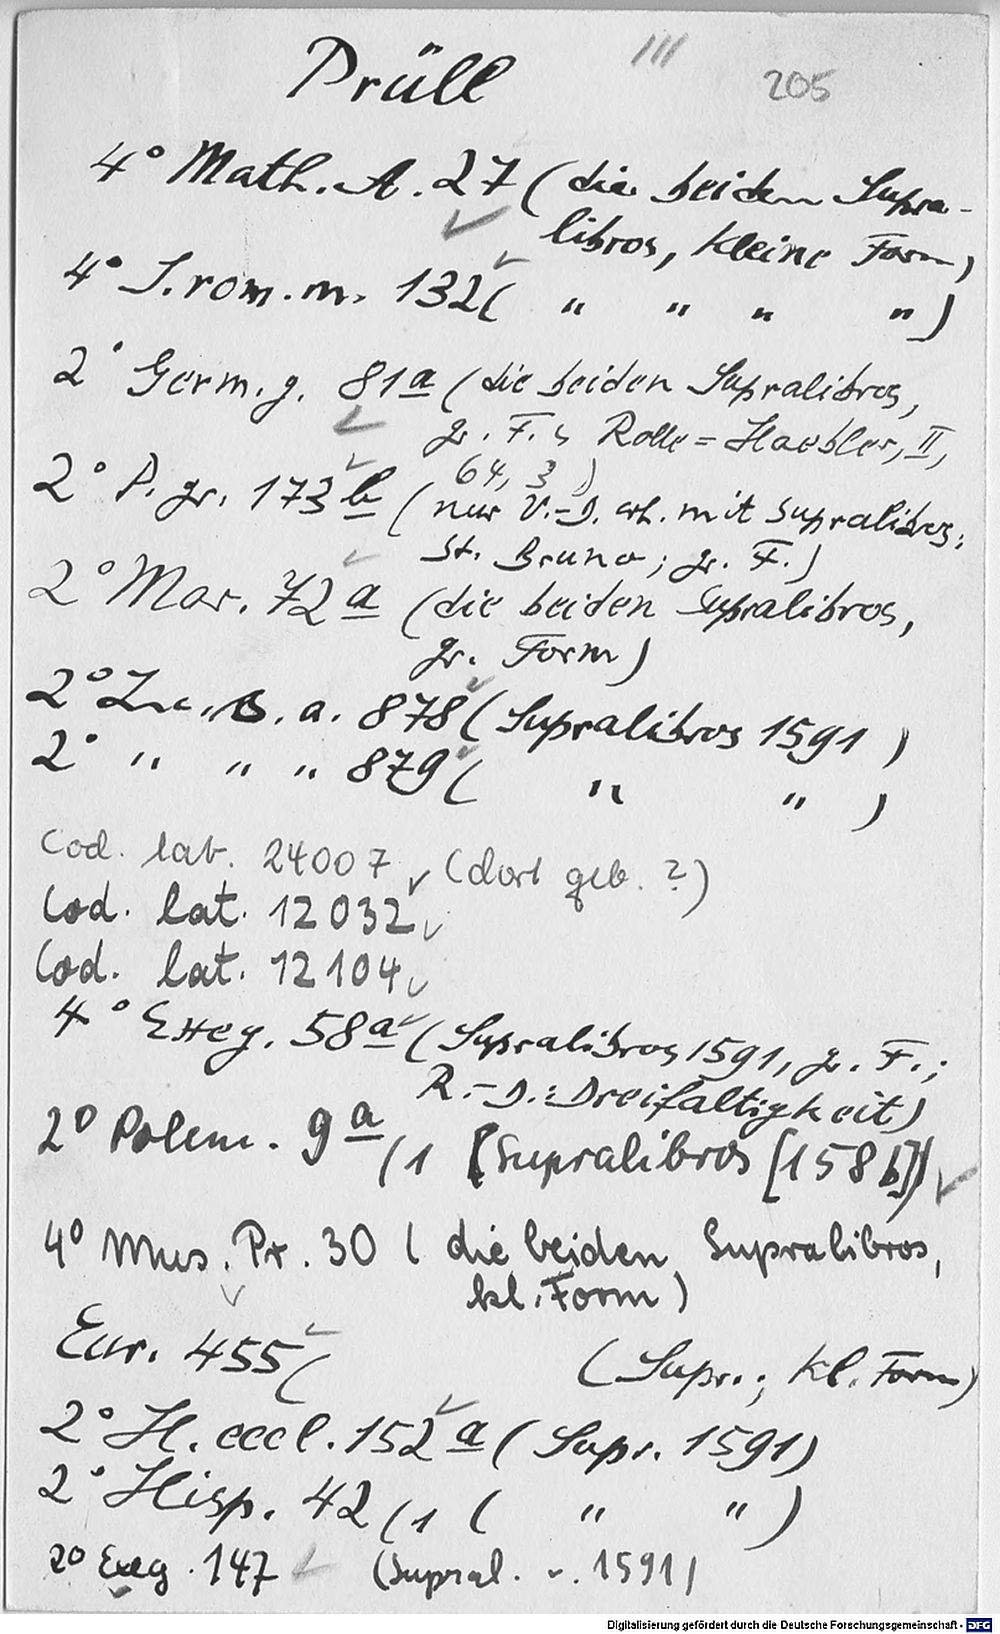 Prüll
205
4° Math. A. 27 (die beiden Supra-
libros, kleine Form)
4° J. rom. m. 132 ( " " " ")
2° Germ. g. 81a (die beiden Supralibros,
gr. F. Rolle = Haebler, II,
64, 3)
2° P. gr. 173 b (nur V.-D. erh. mit Supralibros:
St. Bruno; gr. F.)
2° Mor. 72 a (die beiden Supralibros,
gr. Form)
2° Inc. s. a. 878 (Supralibros 1591)
2° " " " 879 ( " " )
Cod. lat. 24007 (dort geb. ?)
Cod. lat. 12032
Cod. lat. 12104
4° Exeg. 58a (Supralibros 1591, gr. F.;
R.-D.: Dreifaltigkeit)
2° Polem. 9 a/1 (Supralibros [1586])
4° Mus. Pr. 30 (die beiden Supralibros,
kl. Form)
Eur. 455 ( (Supr.; kl. Form)
2° H. eccl. 152 a (Supr. 1591)
2° Hisp. 42/1 ( " " )
2° Exeg. 147 (Supral. v. 1591)
Digitalisierung gefördert durch die Deutsche Forschungsgemeinschaft - DFG